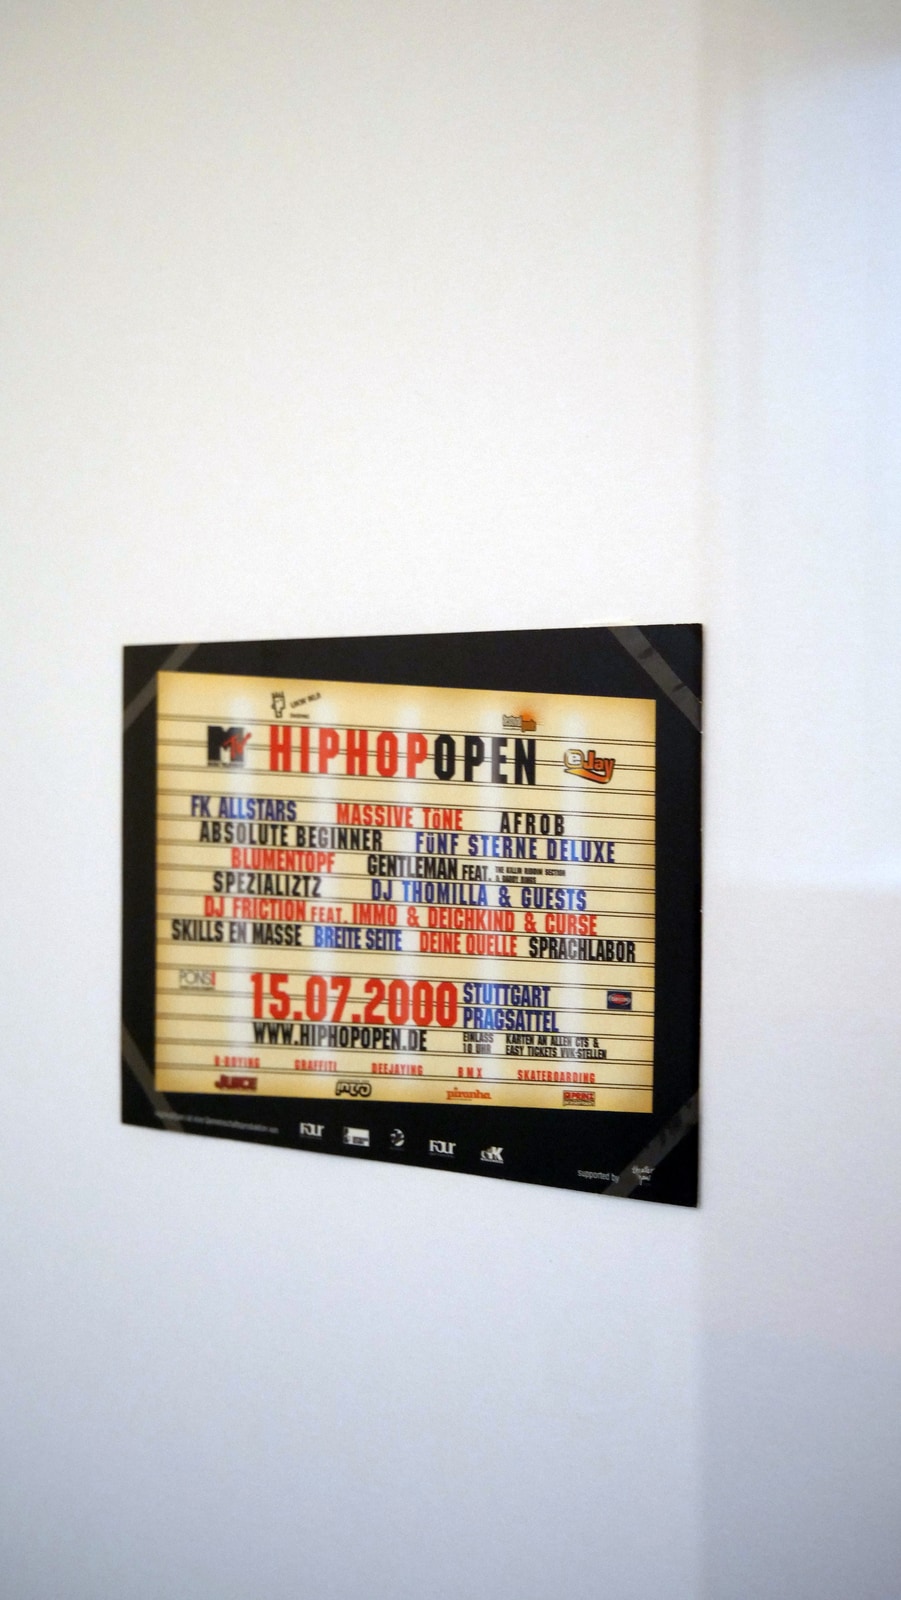 MTV HIPHOPOPEN eJay
FK ALLSTARS MASSIVE TÖNE AFROB
ABSOLUTE BEGINNER FÜNF STERNE DELUXE
BLUMENTOPF GENTLEMAN FEAT. THE KILLIN RIDDIM SECTION
SPEZIALIZTZ DJ THOMILLA & GUESTS
DJ FRICTION FEAT. IMMO & DEICHKIND & CURSE
SKILLS EN MASSE BREITE SEITE DEINE QUELLE SPRACHLABOR
PONS 15.07.2000 STUTTGART
PRAGSATTEL
WWW.HIPHOPOPEN.DE EINLASS 10 UHR KARTEN AN ALLEN CTS & EASY TICKETS VVK-STELLEN
B-BOYING GRAFFITI DEEJAYING BMX SKATEBOARDING
JUICE piranha
FOUR FOUR
supported by